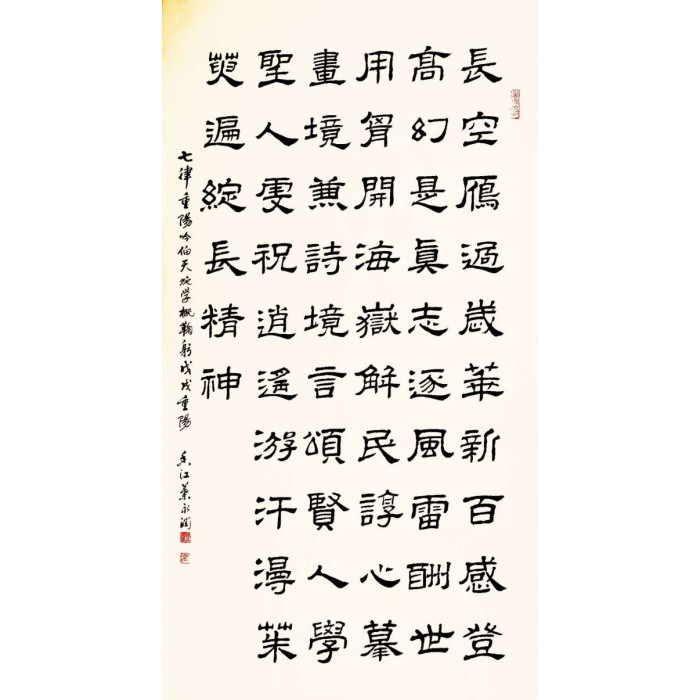 長空鴈過歲華新百感登
高幻是眞志逐風雷酬世
用胷開海嶽解民諄心摹
畫境兼詩境言頌賢人學
聖人祝逍遙游汗漫茱
萸遍綻長精神
七律重陽吟伯天学概鞠躬戊戌重陽 香江葉永润